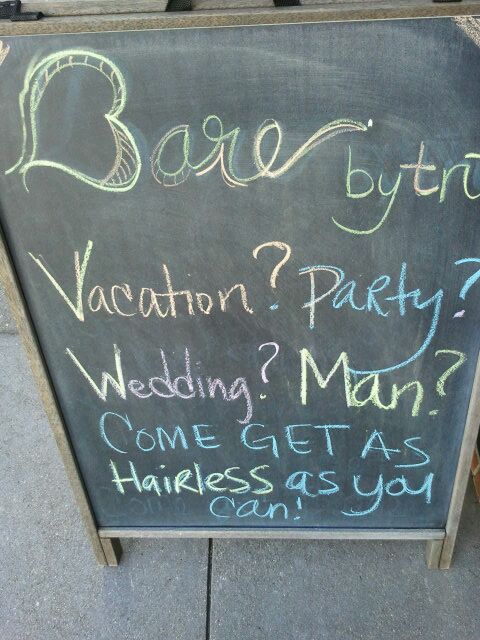 Bare
by tri
Vacation? Party?
Wedding? Man?
COME GET AS
Hairless as you
can!